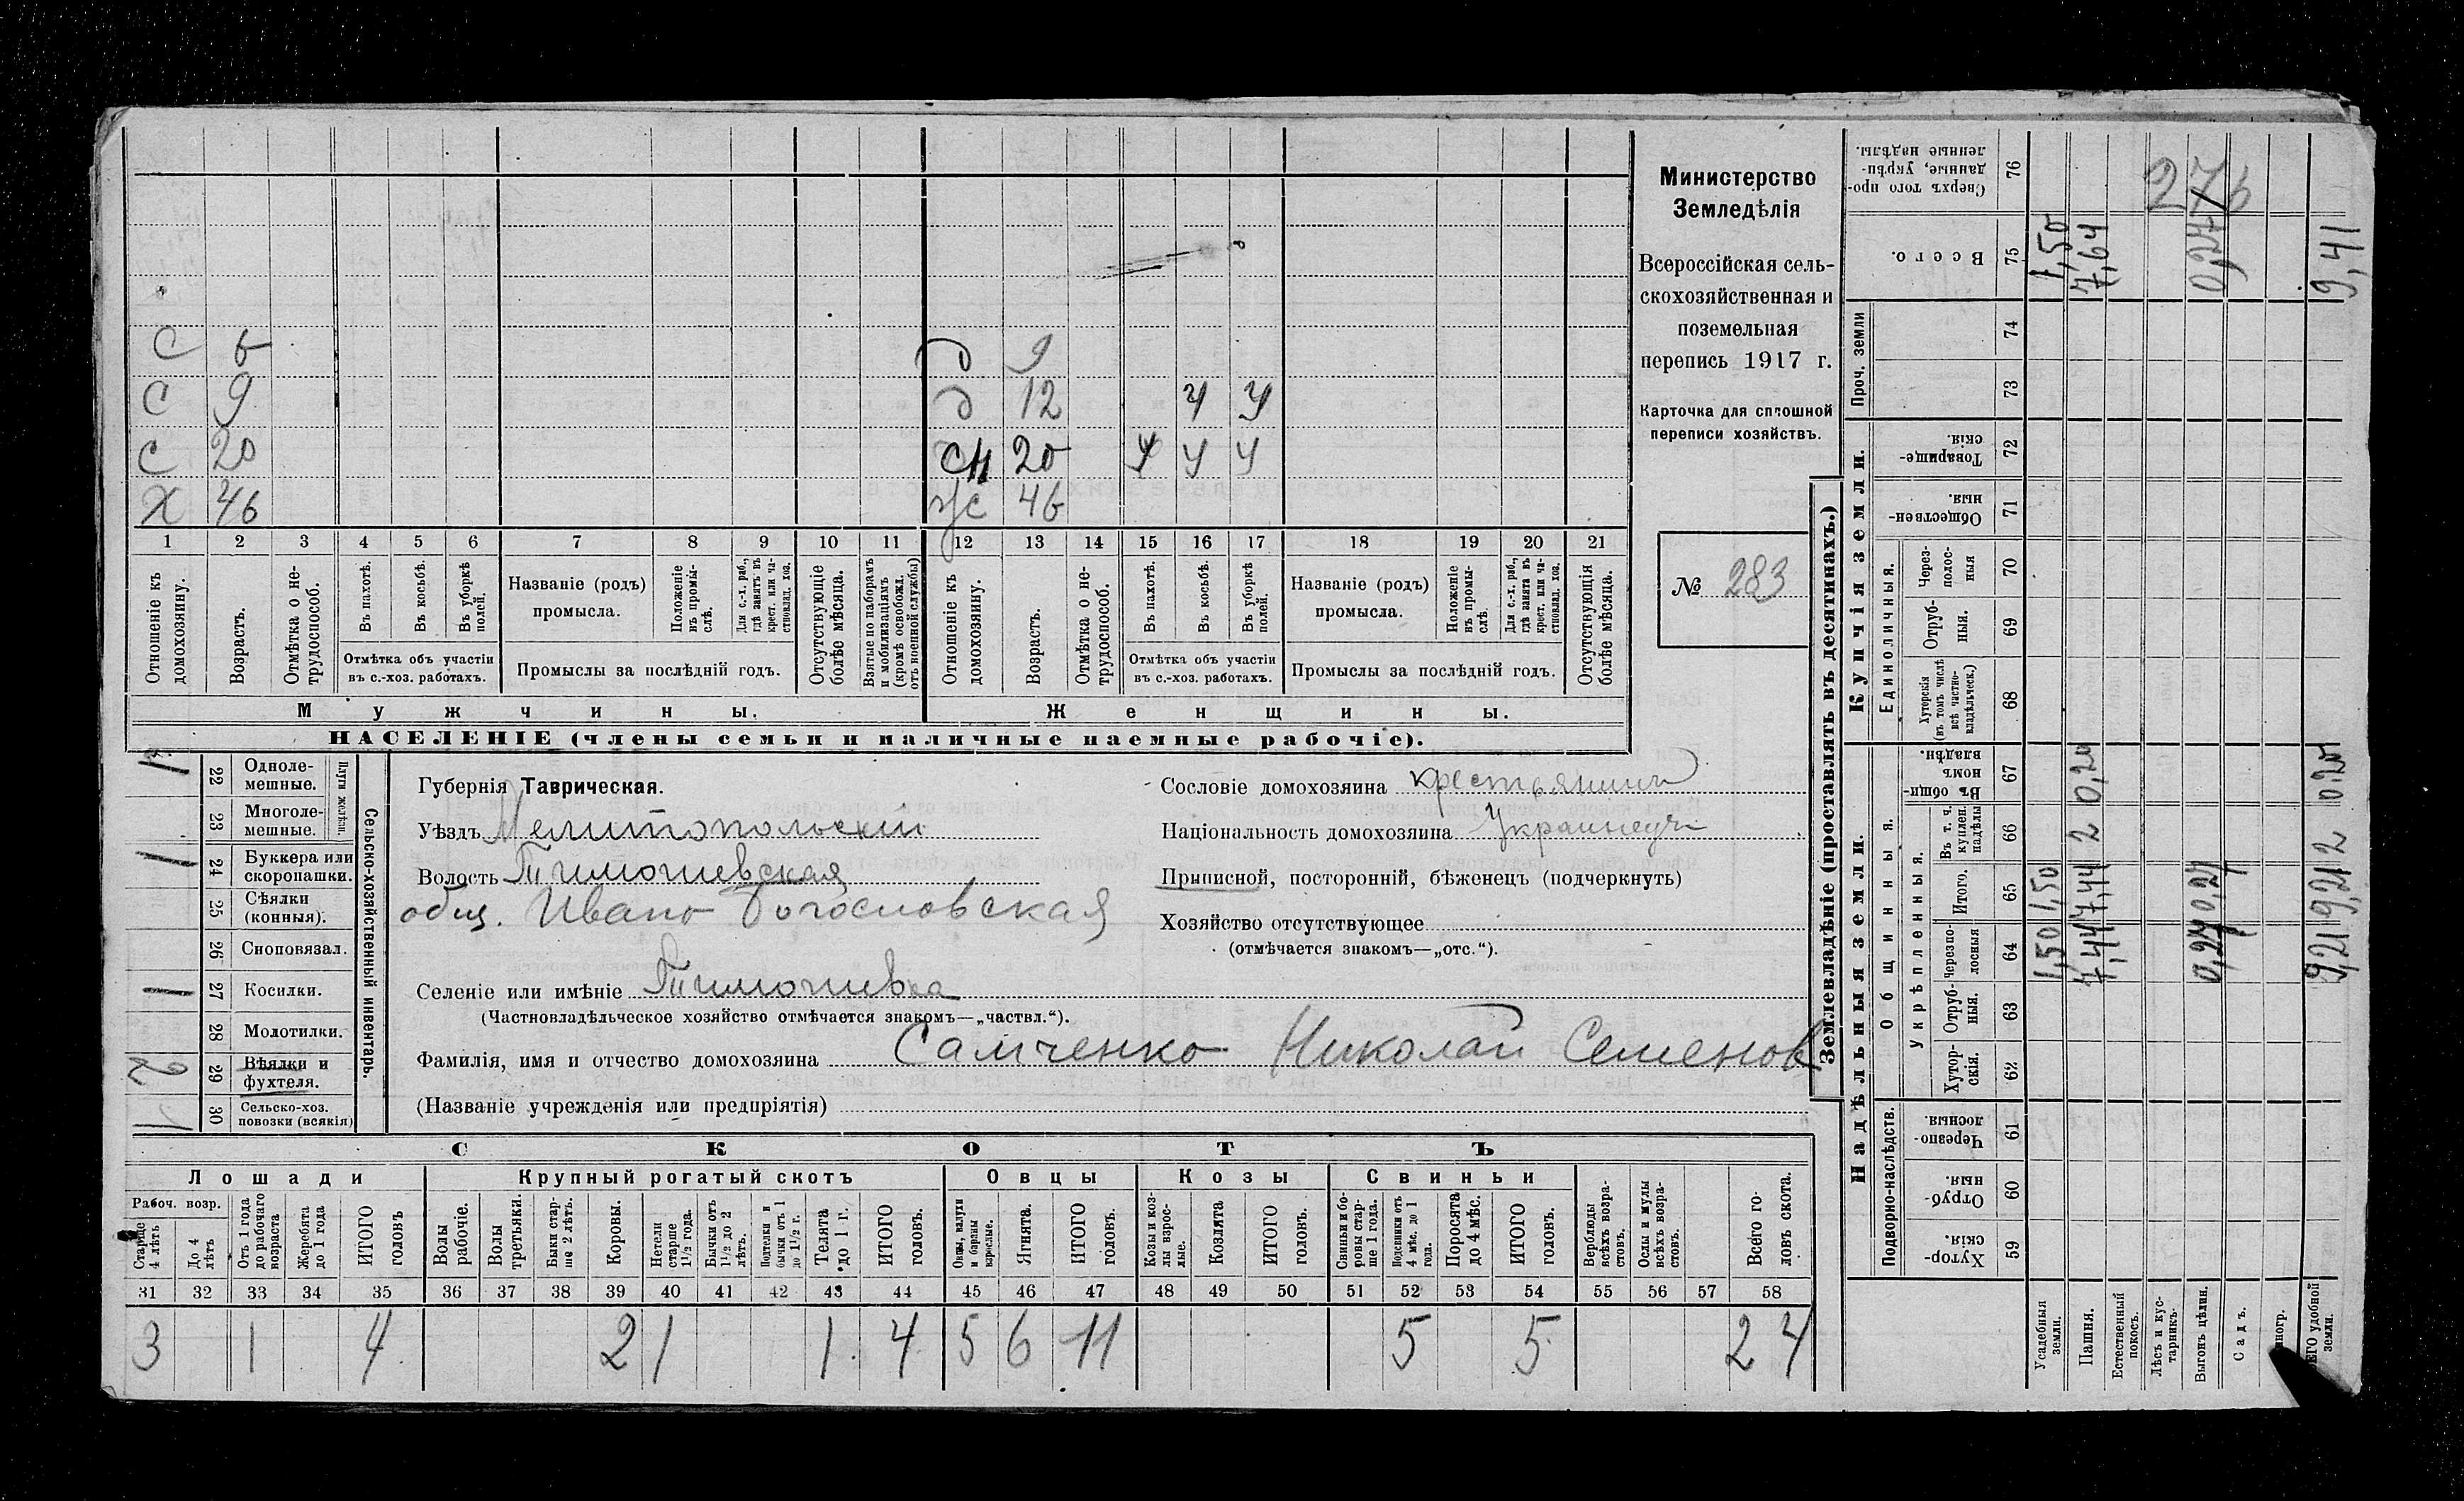 Министерство
Земледѣлія
Всероссійская сель-
скохозяйственная и
поземельная
перепись 1917 г.
Карточка для сплошной
переписи хозяйствъ.
№ 283
С 6 д 9
С 9 д 12 У У
С 20 сн 20 У У У
Х 46 жс 46
1 2 3 4 5 6 7 8 9 10 11 12 13 14 15 16 17 18 19 20 21
Отношеніе къ домохозяину.
Возрастъ.
Отмѣтка о не-трудоспособ.
Въ пахотѣ.
Въ косьбѣ.
Въ уборкѣ полей.
Отмѣтка объ участіи въ с.-хоз. работахъ.
Названіе (родъ) промысла.
Положеніе въ промы-слѣ.
Для с.-х. раб., гдѣ занятъ въ крест. или ча-стновлад. хоз.
Промыслы за послѣдній годъ.
Отсутствующіе болѣе мѣсяца.
Взятые по наборамъ и мобилизаціямъ (кромѣ освобожд. отъ военной службы)
Отношеніе къ домохозяину.
Возрастъ.
Отмѣтка о не-трудоспособ.
Въ пахотѣ.
Въ косьбѣ.
Въ уборкѣ полей.
Отмѣтка объ участіи въ с.-хоз. работахъ.
Названіе (родъ) промысла.
Положеніе въ промы-слѣ.
Для с.-х. раб., гдѣ занята въ крест. или ча-стновлад. хоз.
Промыслы за послѣдній годъ.
Отсутствующія болѣе мѣсяца.
Мужчины. Женщины.
НАСЕЛЕНІЕ (члены семьи и наличные наемные рабочіе).
Сельско-хозяйственный инвентарь.
Плуги желѣзн.
22 Одноле-мешные. 1
23 Многоле-мешные.
24 Буккера или скоропашки. 1
25 Сѣялки (конныя).
26 Сноповязал.
27 Косилки. 1
28 Молотилки.
29 Вѣялки и фухтеля. 2
30 Сельско-хоз. повозки (всякія) 1
Губернія Таврическая.
Уѣздъ Мелитопольскій
Волость Тимошевская
общ. Ивано Богословская
Селеніе или имѣніе Тимошевка
(Частновладѣльческое хозяйство отмѣчается знакомъ—„частвл.“).
Фамилія, имя и отчество домохозяина Самченко Николай Семенов
(Названіе учрежденія или предпріятія)
Сословіе домохозяина крестьянинъ
Національность домохозяина Украинецъ
Приписной, посторонній, бѣженецъ (подчеркнуть)
Хозяйство отсутствующее
(отмѣчается знакомъ—„отс.“).
СКОТЪ
Лошади Крупный рогатый скотъ Овцы Козы Свиньи
Рабоч. возр.
Старше 4 лѣтъ
До 4 лѣтъ
Отъ 1 года до рабочаго возраста
Жеребята до 1 года
ИТОГО головъ
Волы рабочіе.
Волы третьяки.
Быки стар-ше 2 лѣтъ.
Коровы.
Нетели старше 1½ года.
Бычки отъ 1½ до 2 лѣтъ.
бычки отъ 1 до 1½ г.
Телята до 1 г.
ИТОГО головъ.
Овцы, валухи и бараны взрослые.
Ягнята.
ИТОГО головъ.
Козы и коз-лы взрос-лые.
Козлята
ИТОГО головъ.
Свиньи и бо-ровы стар-ше 1 года.
Подсвинки отъ 4 мѣс. до 1 года.
Поросята до 4 мѣс.
ИТОГО головъ.
Верблюды всѣхъ возра-стовъ.
Ослы и мулы всѣхъ возра-стовъ.
Всего го-ловъ скота.
31 32 33 34 35 36 37 38 39 40 41 42 43 44 45 46 47 48 49 50 51 52 53 54 55 56 57 58
3 1 4 2 1 1 4 5 6 11 5 5 24
Землевладѣніе (проставлять въ десятинахъ.)
Надѣльныя земли. Купчія земли.
Подворно-наслѣдств. Общинныя. Единоличныя. Проч. земли
Укрѣпленныя.
59 Хутор-скія.
60 Отруб-ныя.
61 Черезпо-лосныя.
62 Хутор-скія.
63 Отруб-ныя.
64 Черезпо-лосныя
65 Итого.
66 Въ т. ч. куплен. надѣлы
67 Въ общин-номъ владѣн.
68 Хуторскія (въ томъ числѣ всѣ частно-владѣльческ.)
69 Отруб-ныя.
70 Через-полос-ныя
71 Обществен-ныя.
72 Товарище-скія.
73
74
75 Всего.
76 Сверхъ того про-данные, укрѣп-ленные надѣлы.
276
Усадебныя земли. 1,50 1,50 1,50
Пашня. 7,44 7,44 2 0,20 7,64
Естественный покосъ.
Лѣсъ и кус-тарникъ.
Выгонъ цѣлин. 0,27 0,27 0,27
Садъ.
ногр.
ЕГО удобной земли. 9,21 9,21 2 0,20 9,41